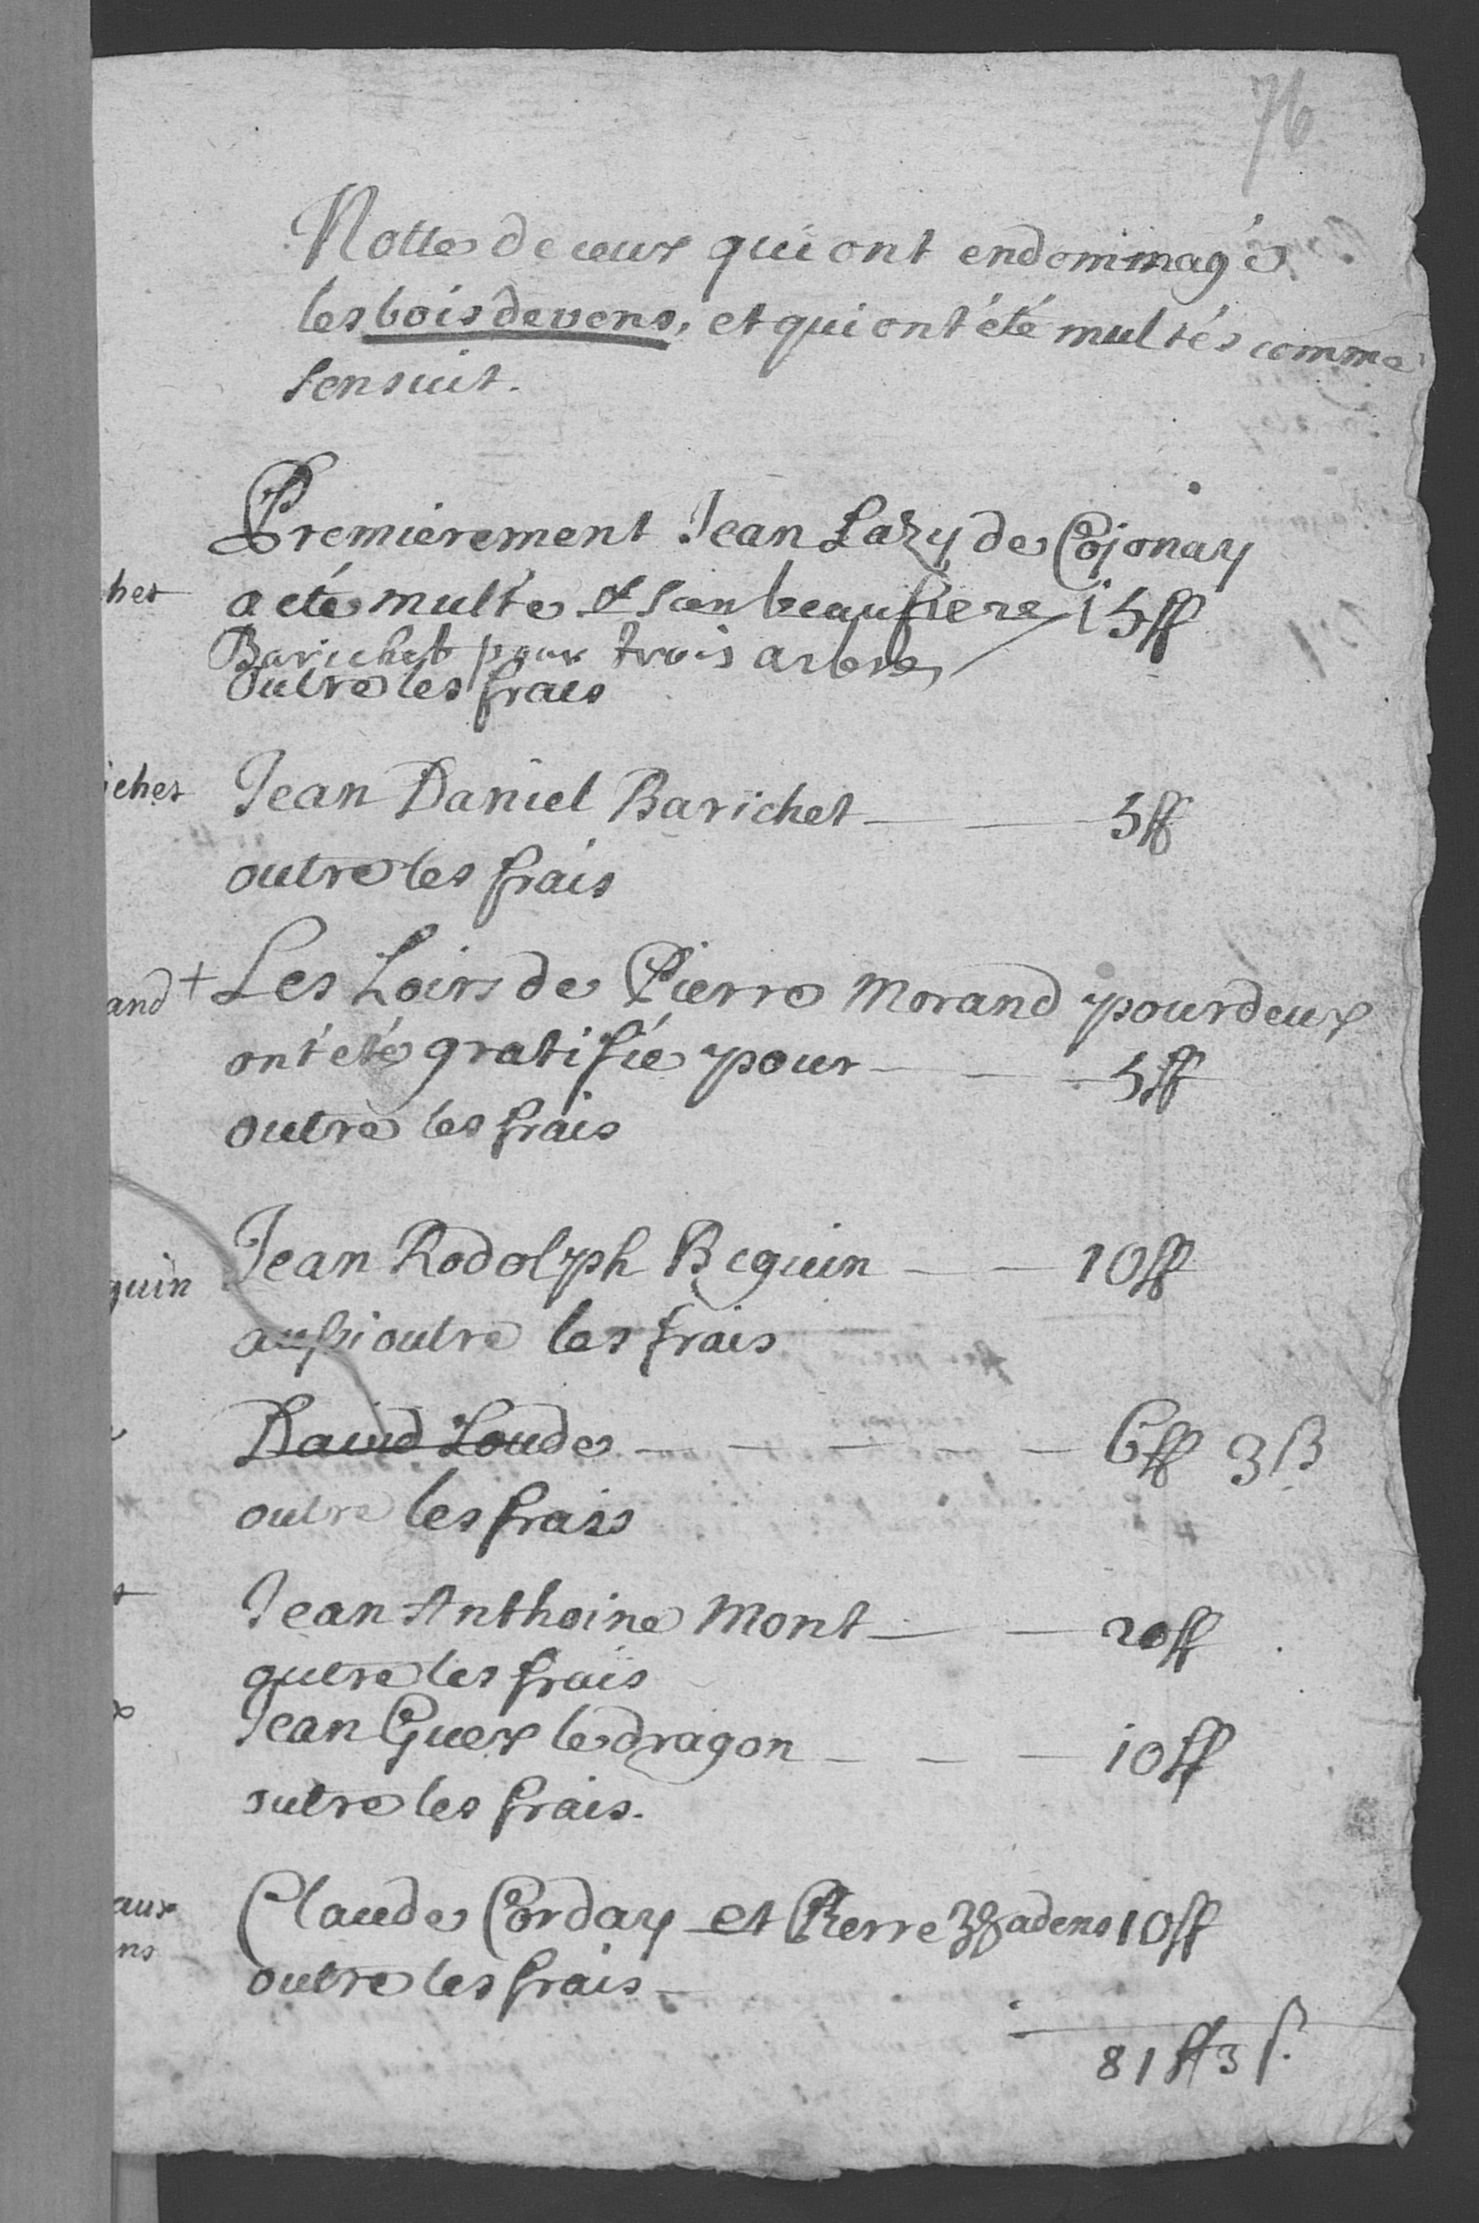 76
Notte de ceux qui ont endommagé
les bois de vens, et qui ont été multés comme
sensuit.
Premierement Jean Lazy de Cojonay
a eté multé & son beaufrere 15 ff
Barichet pour trois arbres
outre les frais
Jean Daniel Barichet 5 ff
outre les frais
+ Les hoirs de Pierre Morand pour deux
ont été gratifié pour 5 ff
outre les frais
Jean Rodolph Beguin 10 ff
aussi outre les frais
David Loude 6 ff 3 ß
outre les frais
Jean Anthoine Mont 20 ff
outre les frais
Jean Guex le dragon 10 ff
outre les frais.
Claude Corday et Pierre 10 ff
outre les frais
81 ff 3 ß.